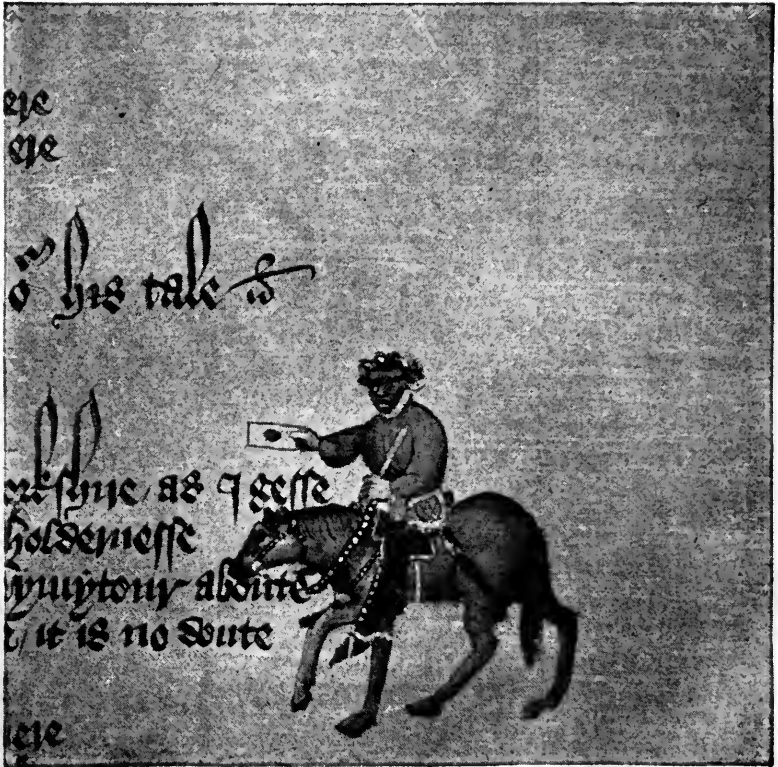 ere
ere
his tale
erkshire / as I gesse
holdernesse
lymytour aboute
it is no doute
ere